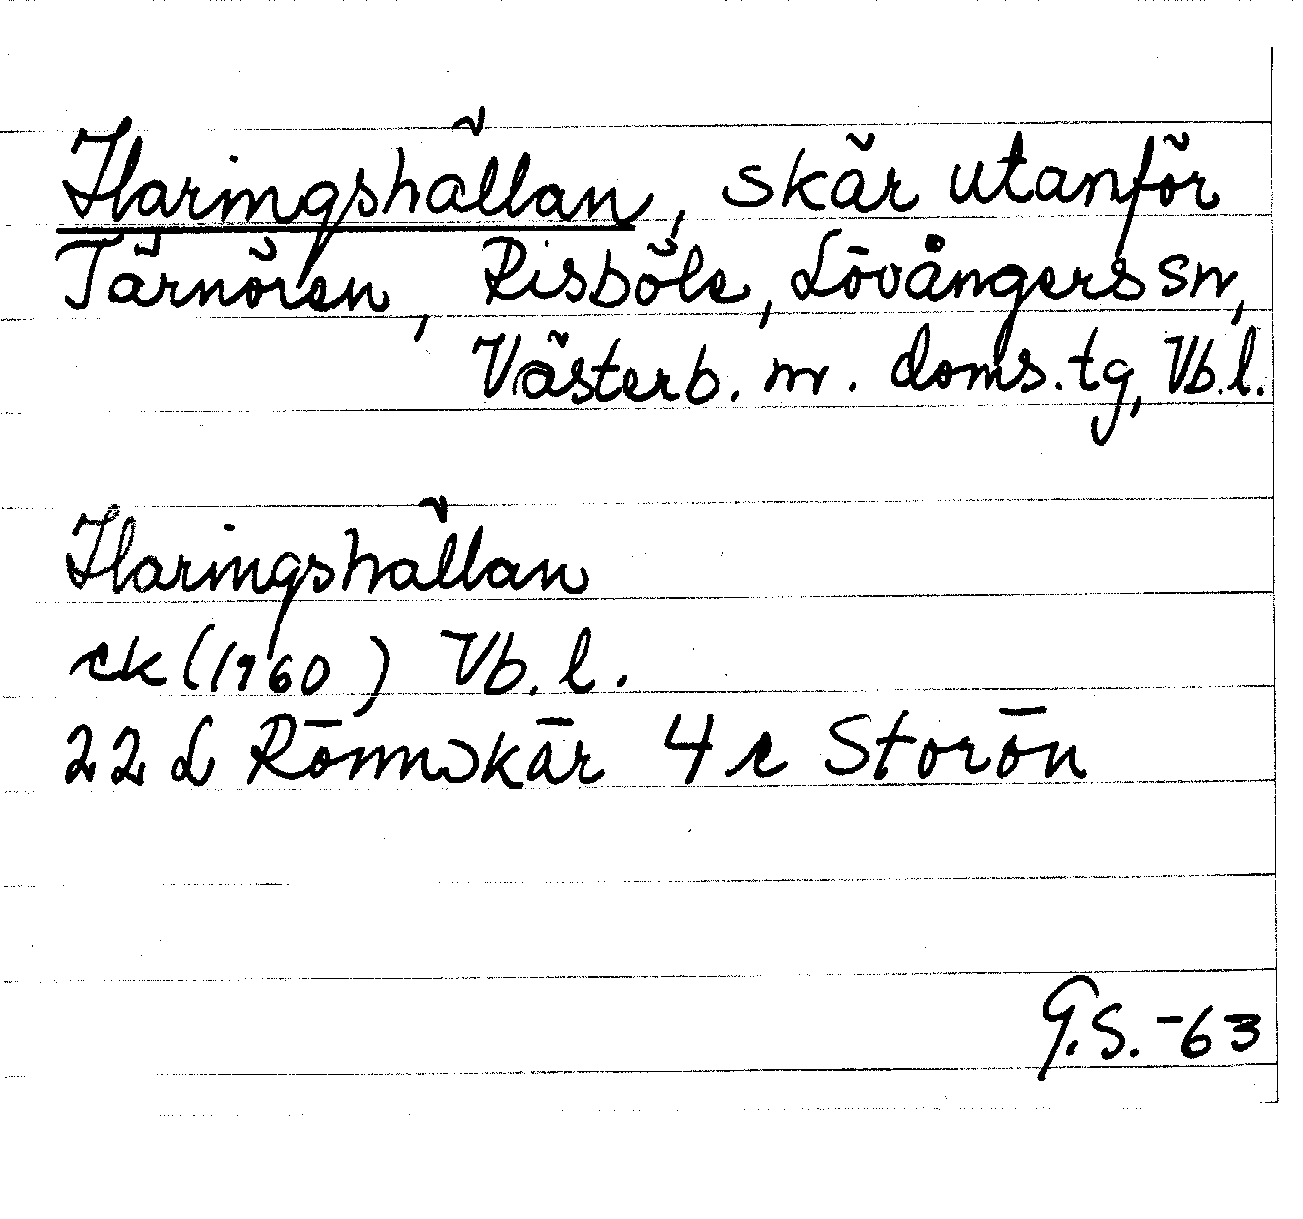 Haringshällan, skär utanför
Tärnören, Risböle, Lövångers sn,
Västerb. n. doms. tg, Vb. l.
Haringshällan
ek (1960) Vb. l.
22 L Rönnskär 4 e Storön
G.S. -63